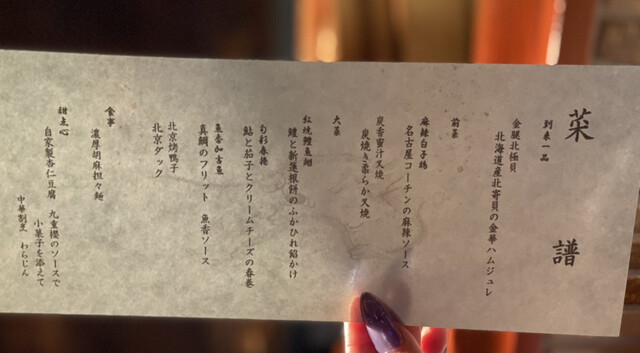 菜譜
到来一品
金腿北極貝
北海道産北寄貝の金華ハムジュレ
前菜
麻辣白子鶏
名古屋コーチンの麻辣ソース
炭香蜜汁叉焼
炭焼き柔らか叉焼
大菜
紅焼鱧魚翅
鱧と新蓮根餅のふかひれ餡かけ
旬彩春捲
鮎と茄子とクリームチーズの春巻
魚香加吉魚
真鯛のフリット 魚香ソース
北京烤鴨子
北京ダック
食事
濃厚胡麻担々麺
甜点心
自家製杏仁豆腐 九重櫻のソースで
小菓子を添えて
中華割烹 わらじん